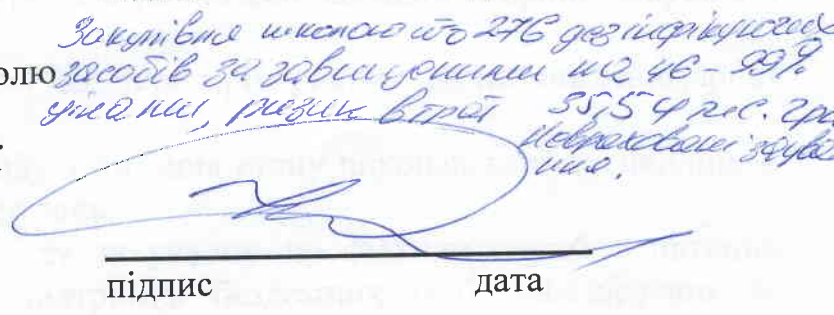 Закупівля школою 276 дезінфікуючих
олю засобів за завищеними на 46-99%
цінами, ризик втрат 35,54 тис. грн
Невраховані
підпис дата